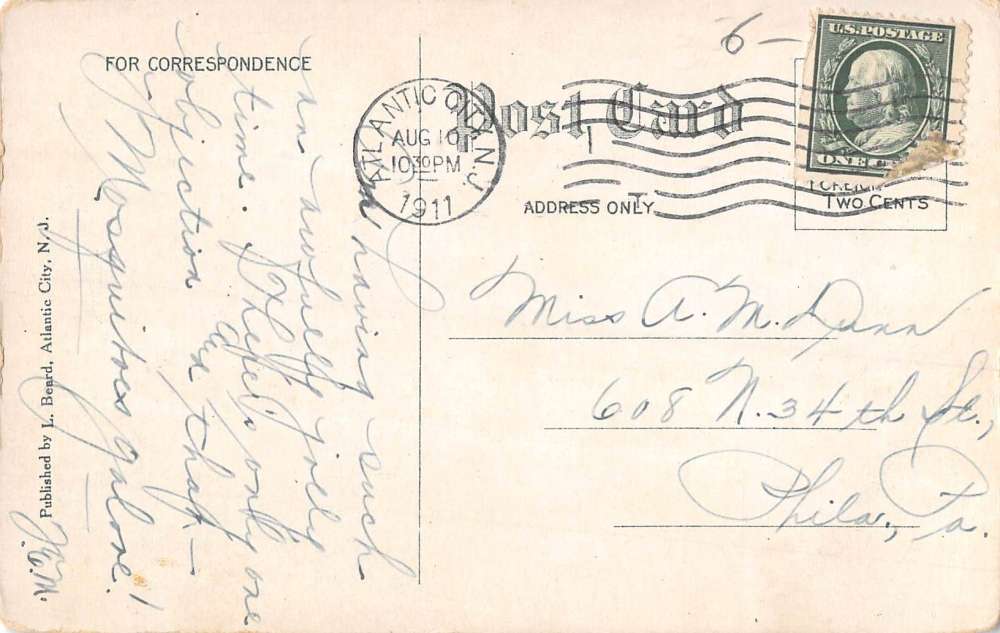 FOR CORRESPONDENCE
Post Card
6 —
U.S. POSTAGE
ONE
ATLANTIC CITY, N.J.
AUG 10
10 30 PM
1911
TWO CENTS
ADDRESS ONLY
Am having such
an awfully jolly
time. There's only one
objection &
that —
Mosquitoes galore!
Miss A. M. Dunn
608 N. 34th St.,
Phila., Pa.
Published by L. Beard, Atlantic City, N. J.